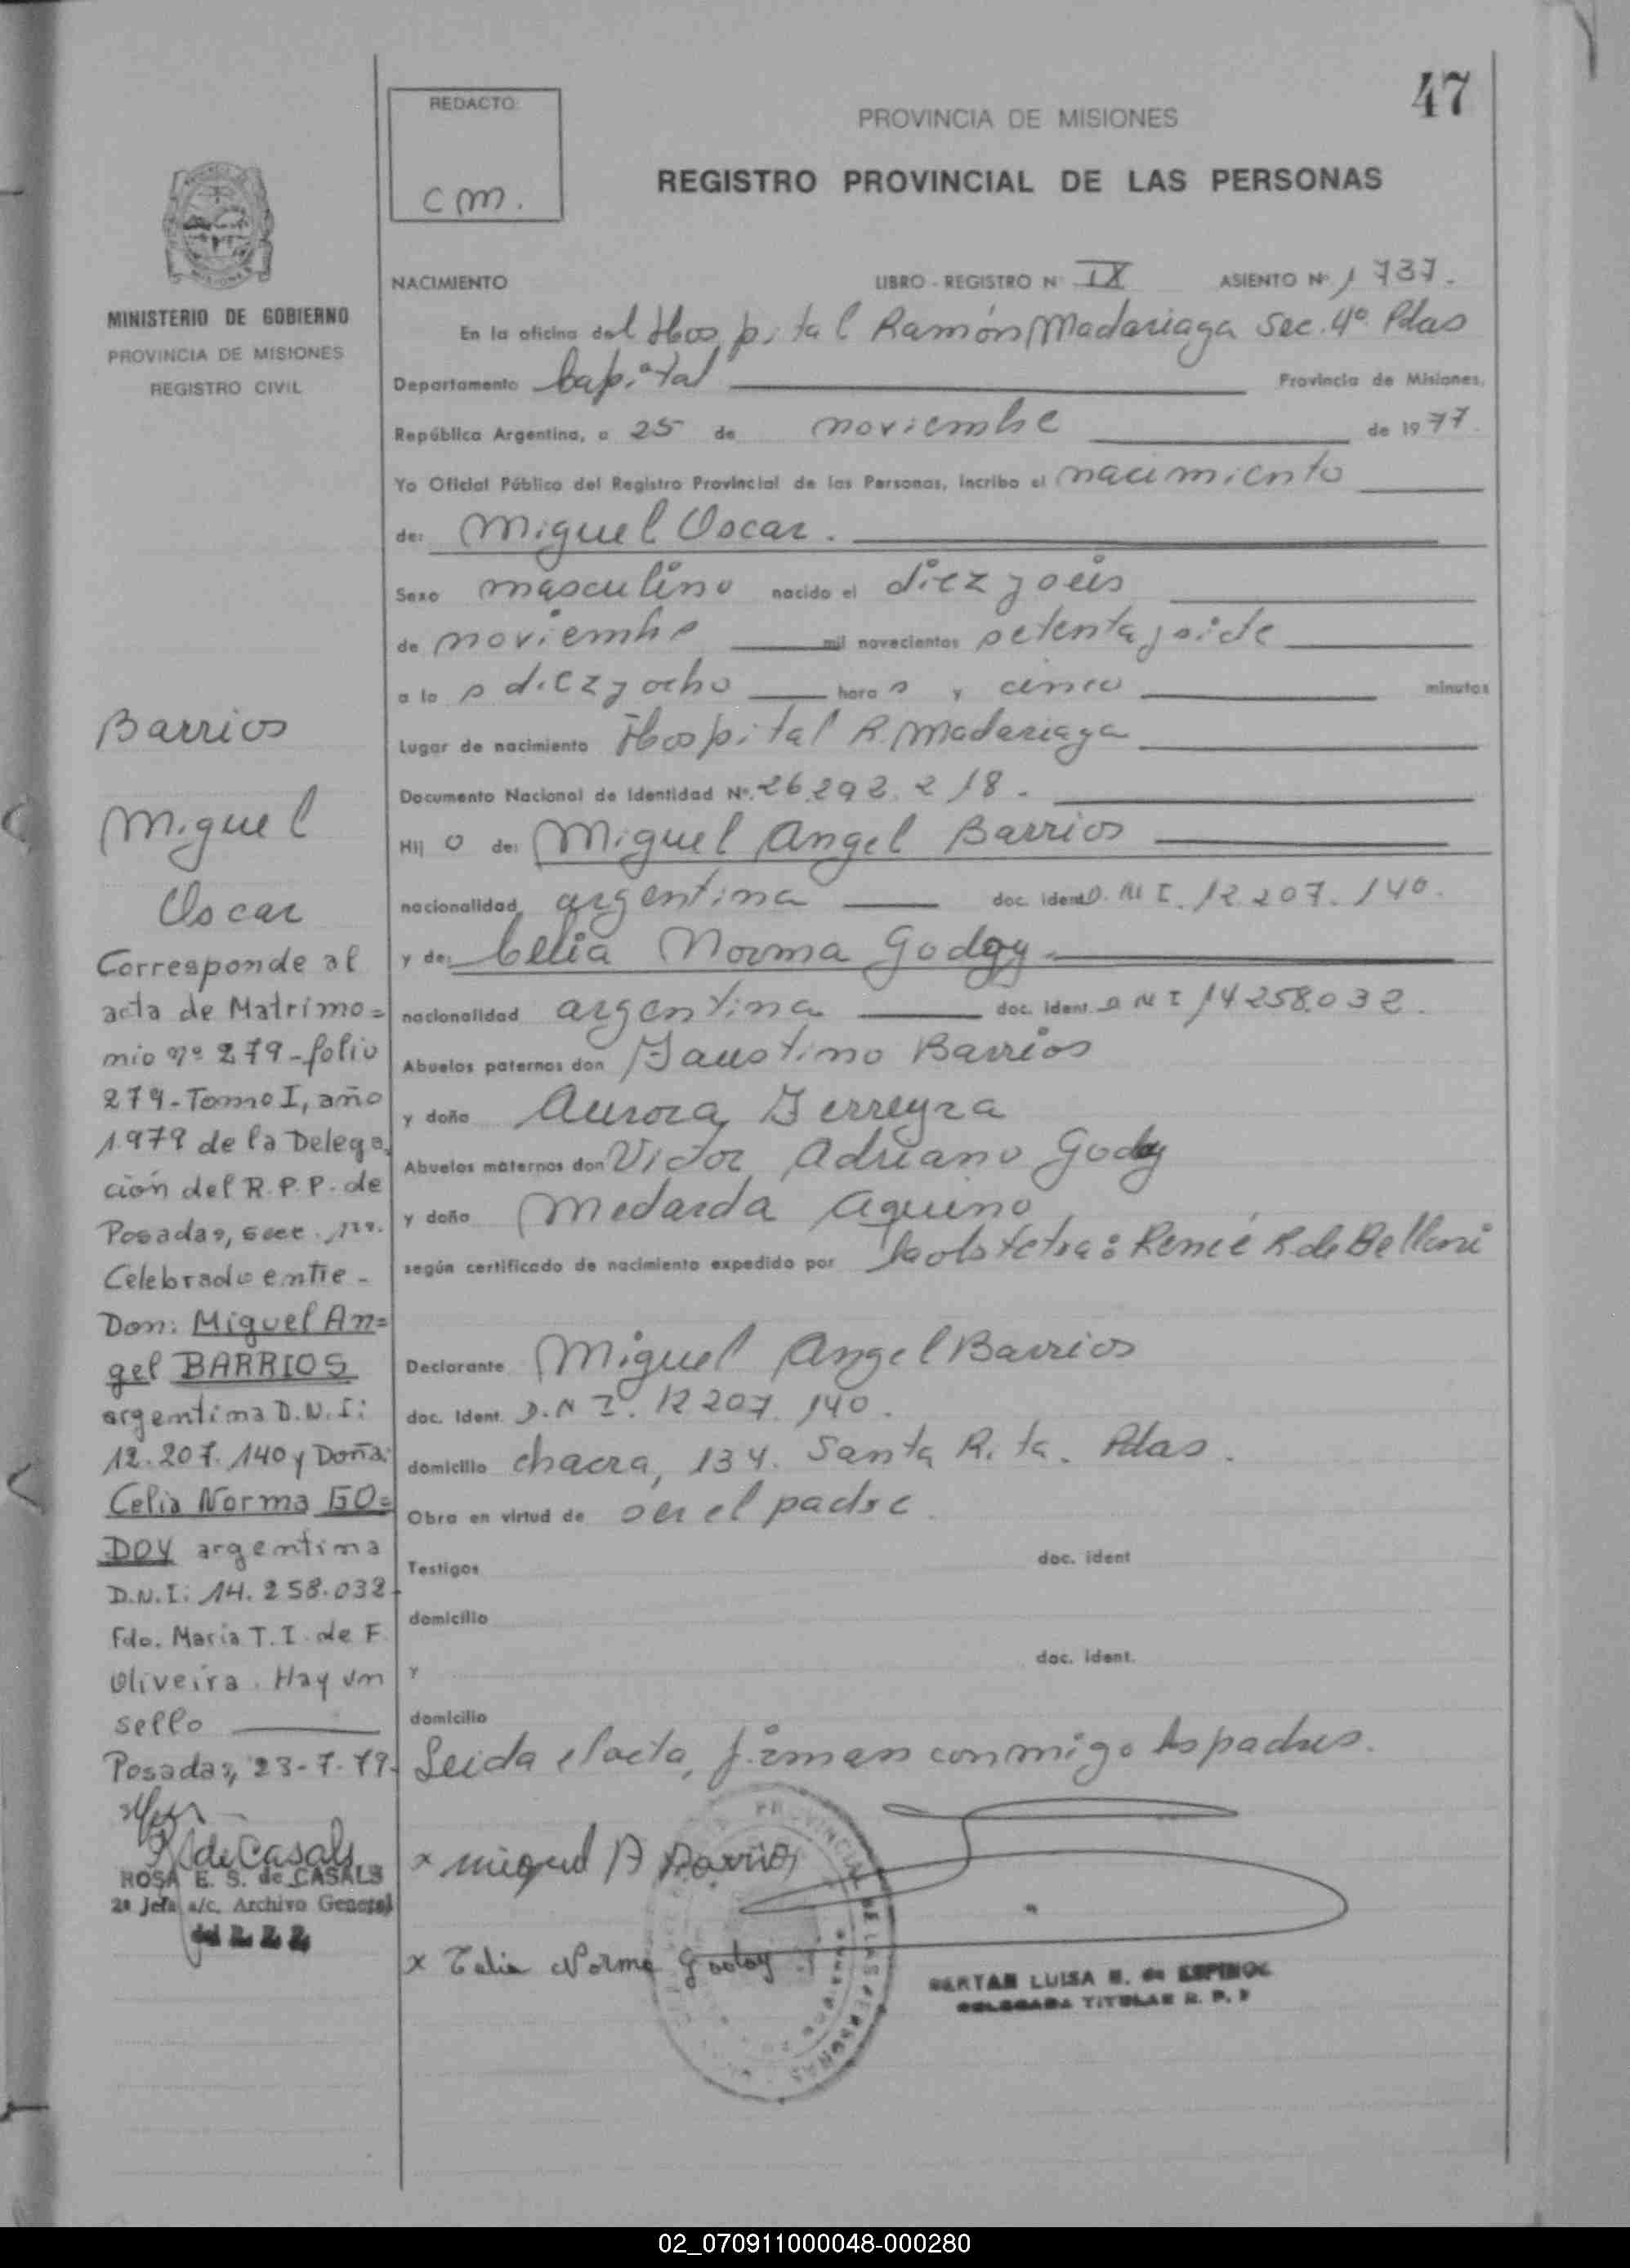 47
REDACTO
cm.
PROVINCIA DE MISIONES
REGISTRO PROVINCIAL DE LAS PERSONAS
MINISTERIO DE GOBIERNO
PROVINCIA DE MISIONES
REGISTRO CIVIL
Barrios
Miguel
Oscar
Corresponde al
acta de Matrimo=
nio nº 279-folio
279-Tomo I, año
1979 de la Delega
ción del R.P.P. de
Posadas, secc. 1ra.
Celebrado entre -
Don: Miguel An=
gel BARRIOS
argentina D.N.I:
12.207.140 y Doña:
Celia Norma GO=
DOY argentina
D.N.I: 14.258.032-
Fdo. María T. I. de F.
Oliveira. Hay un
sello
Posadas, 23-7-79-
R de Casals
ROSA E. S. de CASALS
2ª Jefa a/c. Archivo General
del
NACIMIENTO LIBRO - REGISTRO Nº IX ASIENTO Nº 1737.
En la oficina del Hospital Ramón Madariaga Sec. 4º Pdas
Departamento Capital Provincia de Misiones,
República Argentina, a 25 de noviembre de 1977.
Yo Oficial Público del Registro Provincial de las Personas, incribo el nacimiento
de: Miguel Oscar.
Sexo masculino nacido el diez y seis
de noviembre mil novecientos setenta y siete
a la s diez y ocho hora s y cinco minutos
Lugar de nacimiento Hospital R. Madariaga
Documento Nacional de Identidad Nº. 26.292.218.
Hij o de: Miguel Angel Barrios
nacionalidad argentina doc. ident D.N.I. 12.207.140.
y de: Celia Norma Godoy.
nacionalidad argentina doc. ident. D N I 14258.032.
Abuelos paternos don Faustino Barrios
y doña Aurora Ferreyra
Abuelos maternos don Victor Adriano Godoy
y doña Medarda Aquino
según certificado de nacimiento expedido por la obstetra: Reneé R de Belloni
Declarante Miguel Angel Barrios
doc. Ident. D.N I. 12 207. 140.
domicilio chacra, 134. Santa Rita. Pdas.
Obra en virtud de ser el padre.
Testigos doc. ident
domicilio
y doc. ident.
domicilio
Leida el acta, firman conmigo los padres.
x Miguel A Barrios
x Celia Norma Godoy
PROVINCIAL DE LAS PERSONAS
LUISA de ESPINOL
DELEGADA TITULAR R. P. P
02_070911000048-000280